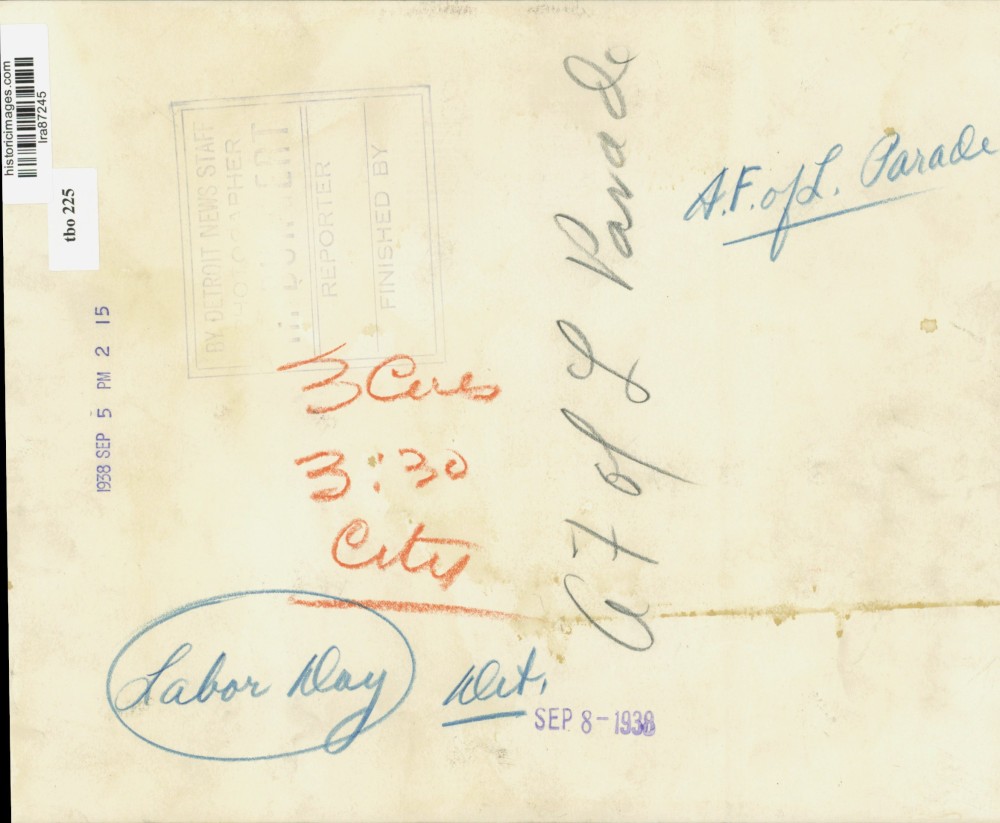 historicimages.com
lra87245
tbo 225
1938 SEP 5 PM 2 15
BY DETROIT NEWS STAFF
PHOTOGRAPHER
REPORTER
FINISHED BY
A.F. of L. Parade
A F of L Parade
3 Cols
3:30
City
Labor Day Det.
SEP 8-1938